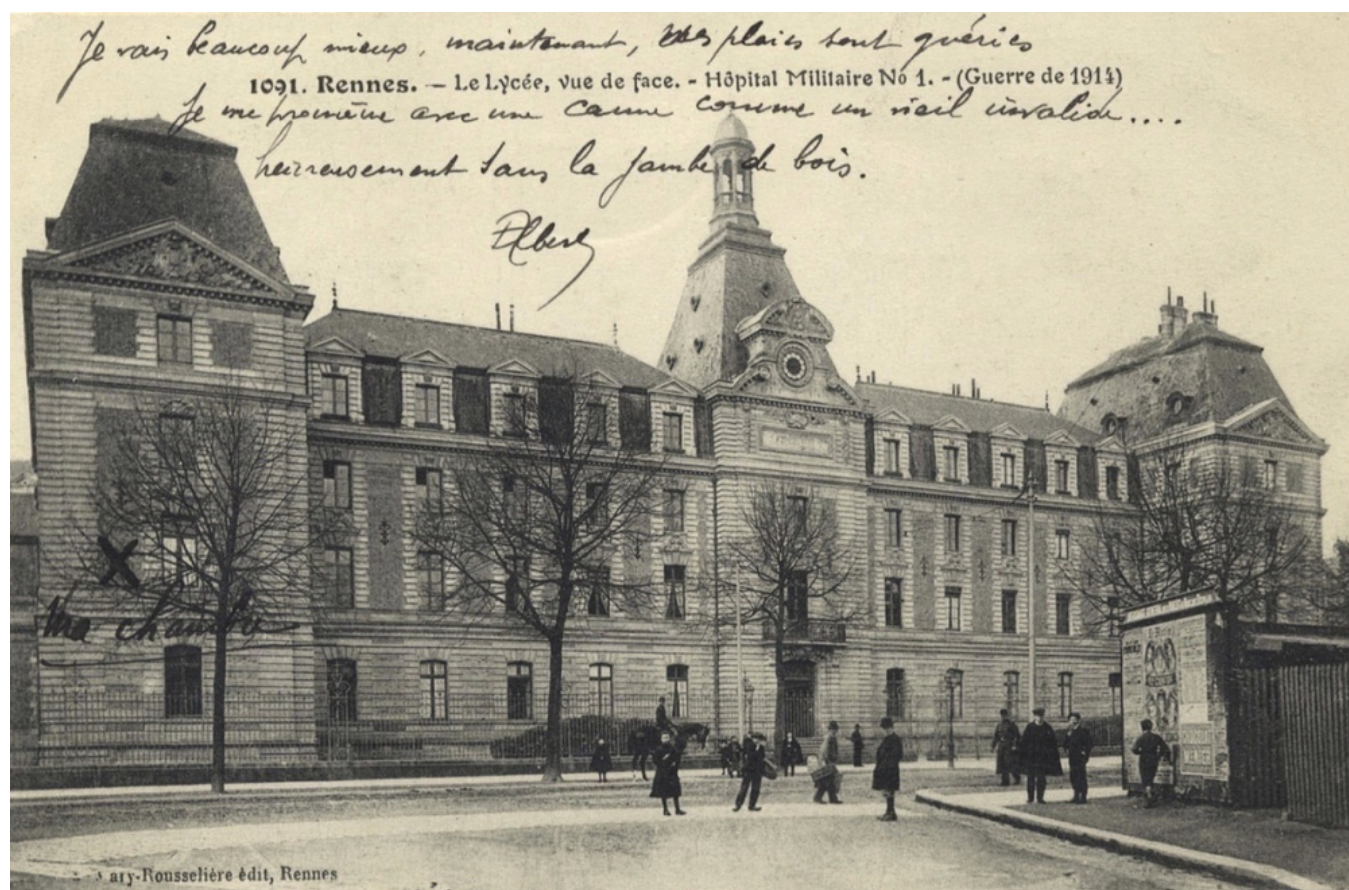 Je vais beaucoup mieux, maintenant, mes plaies sont guéries
1091. Rennes. — Le Lycée, vue de face. - Hôpital Militaire No 1. - (Guerre de 1914)
Je me promène avec une canne comme un vieil invalide....
heureusement sans la jambe de bois.
Albert
X
Ma chambre
ary-Rousselière édit, Rennes